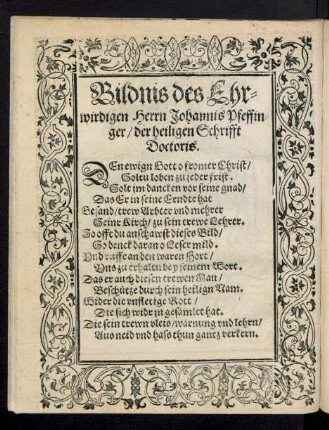 Bildnis des Ehr-
wirdigen Herrn Johannis Pfeffin
ger / der heiligen Schrifft
Doctoris.
DEn ewign Gott o fromer Christ /
Soltu loben zu jeder frist.
Solt jm dancken vor seine gnad /
Das Er in seine Erndte hat
Gesand / trew Arbter vnd mehrer
Seinr Kirch / zu sein trewe Lehrer.
So offt du anschawst dieses Bild /
So denck daran o Leser mild.
Vnd ruffe an den waren Hort /
Vns zu erhalten bey seinem Wort.
Das er auch diesen trewen Man /
Beschütze durch sein heilign Nam.
Wider die vnfletige Rott /
Die sich widr jn gesamlet hat.
Die sein trewn vleis / warnung vnd lehrn /
Aus neid vnd hass thun gantz verkern.